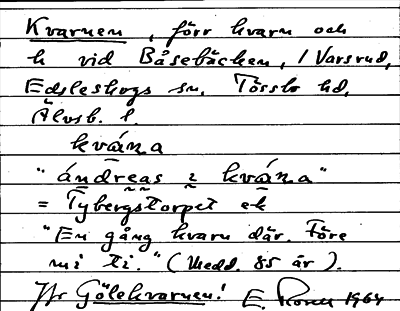 Kvarnen, förr kvarn och
h vid Båsebäcken, / Varsrud,
Edsleskogs sn. Tössbo hd,
Älvsb. l.
kvána
"ándreas i kvána"
= Tybergstorpet ek
"En gång kvarn där. Före
mi ti." (Medd. 85 år).
Jfr Gölekvarnen! E. 1964